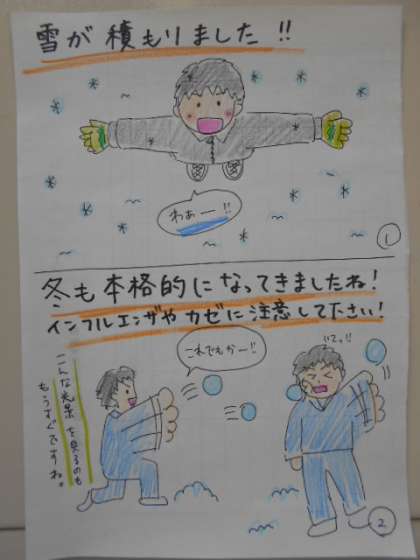 雪が積もりました!!
わぁー!!
1
冬も本格的になってきましたね!
インフルエンザやカゼに注意して下さい!
これでもかー!!
いてっ!!
こんな光景を見るのも
もうすぐですね。
2